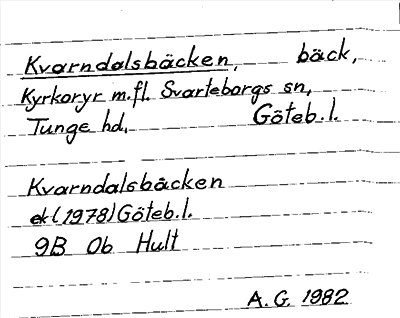 Kvarndalsbäcken, bäck,
Kyrkoryr m.fl. Svarteborgs sn,
Tunge hd, Göteb.l.
Kvarndalsbäcken
ek (1978) Göteb.l.
9B 0b Hult
A.G. 1982